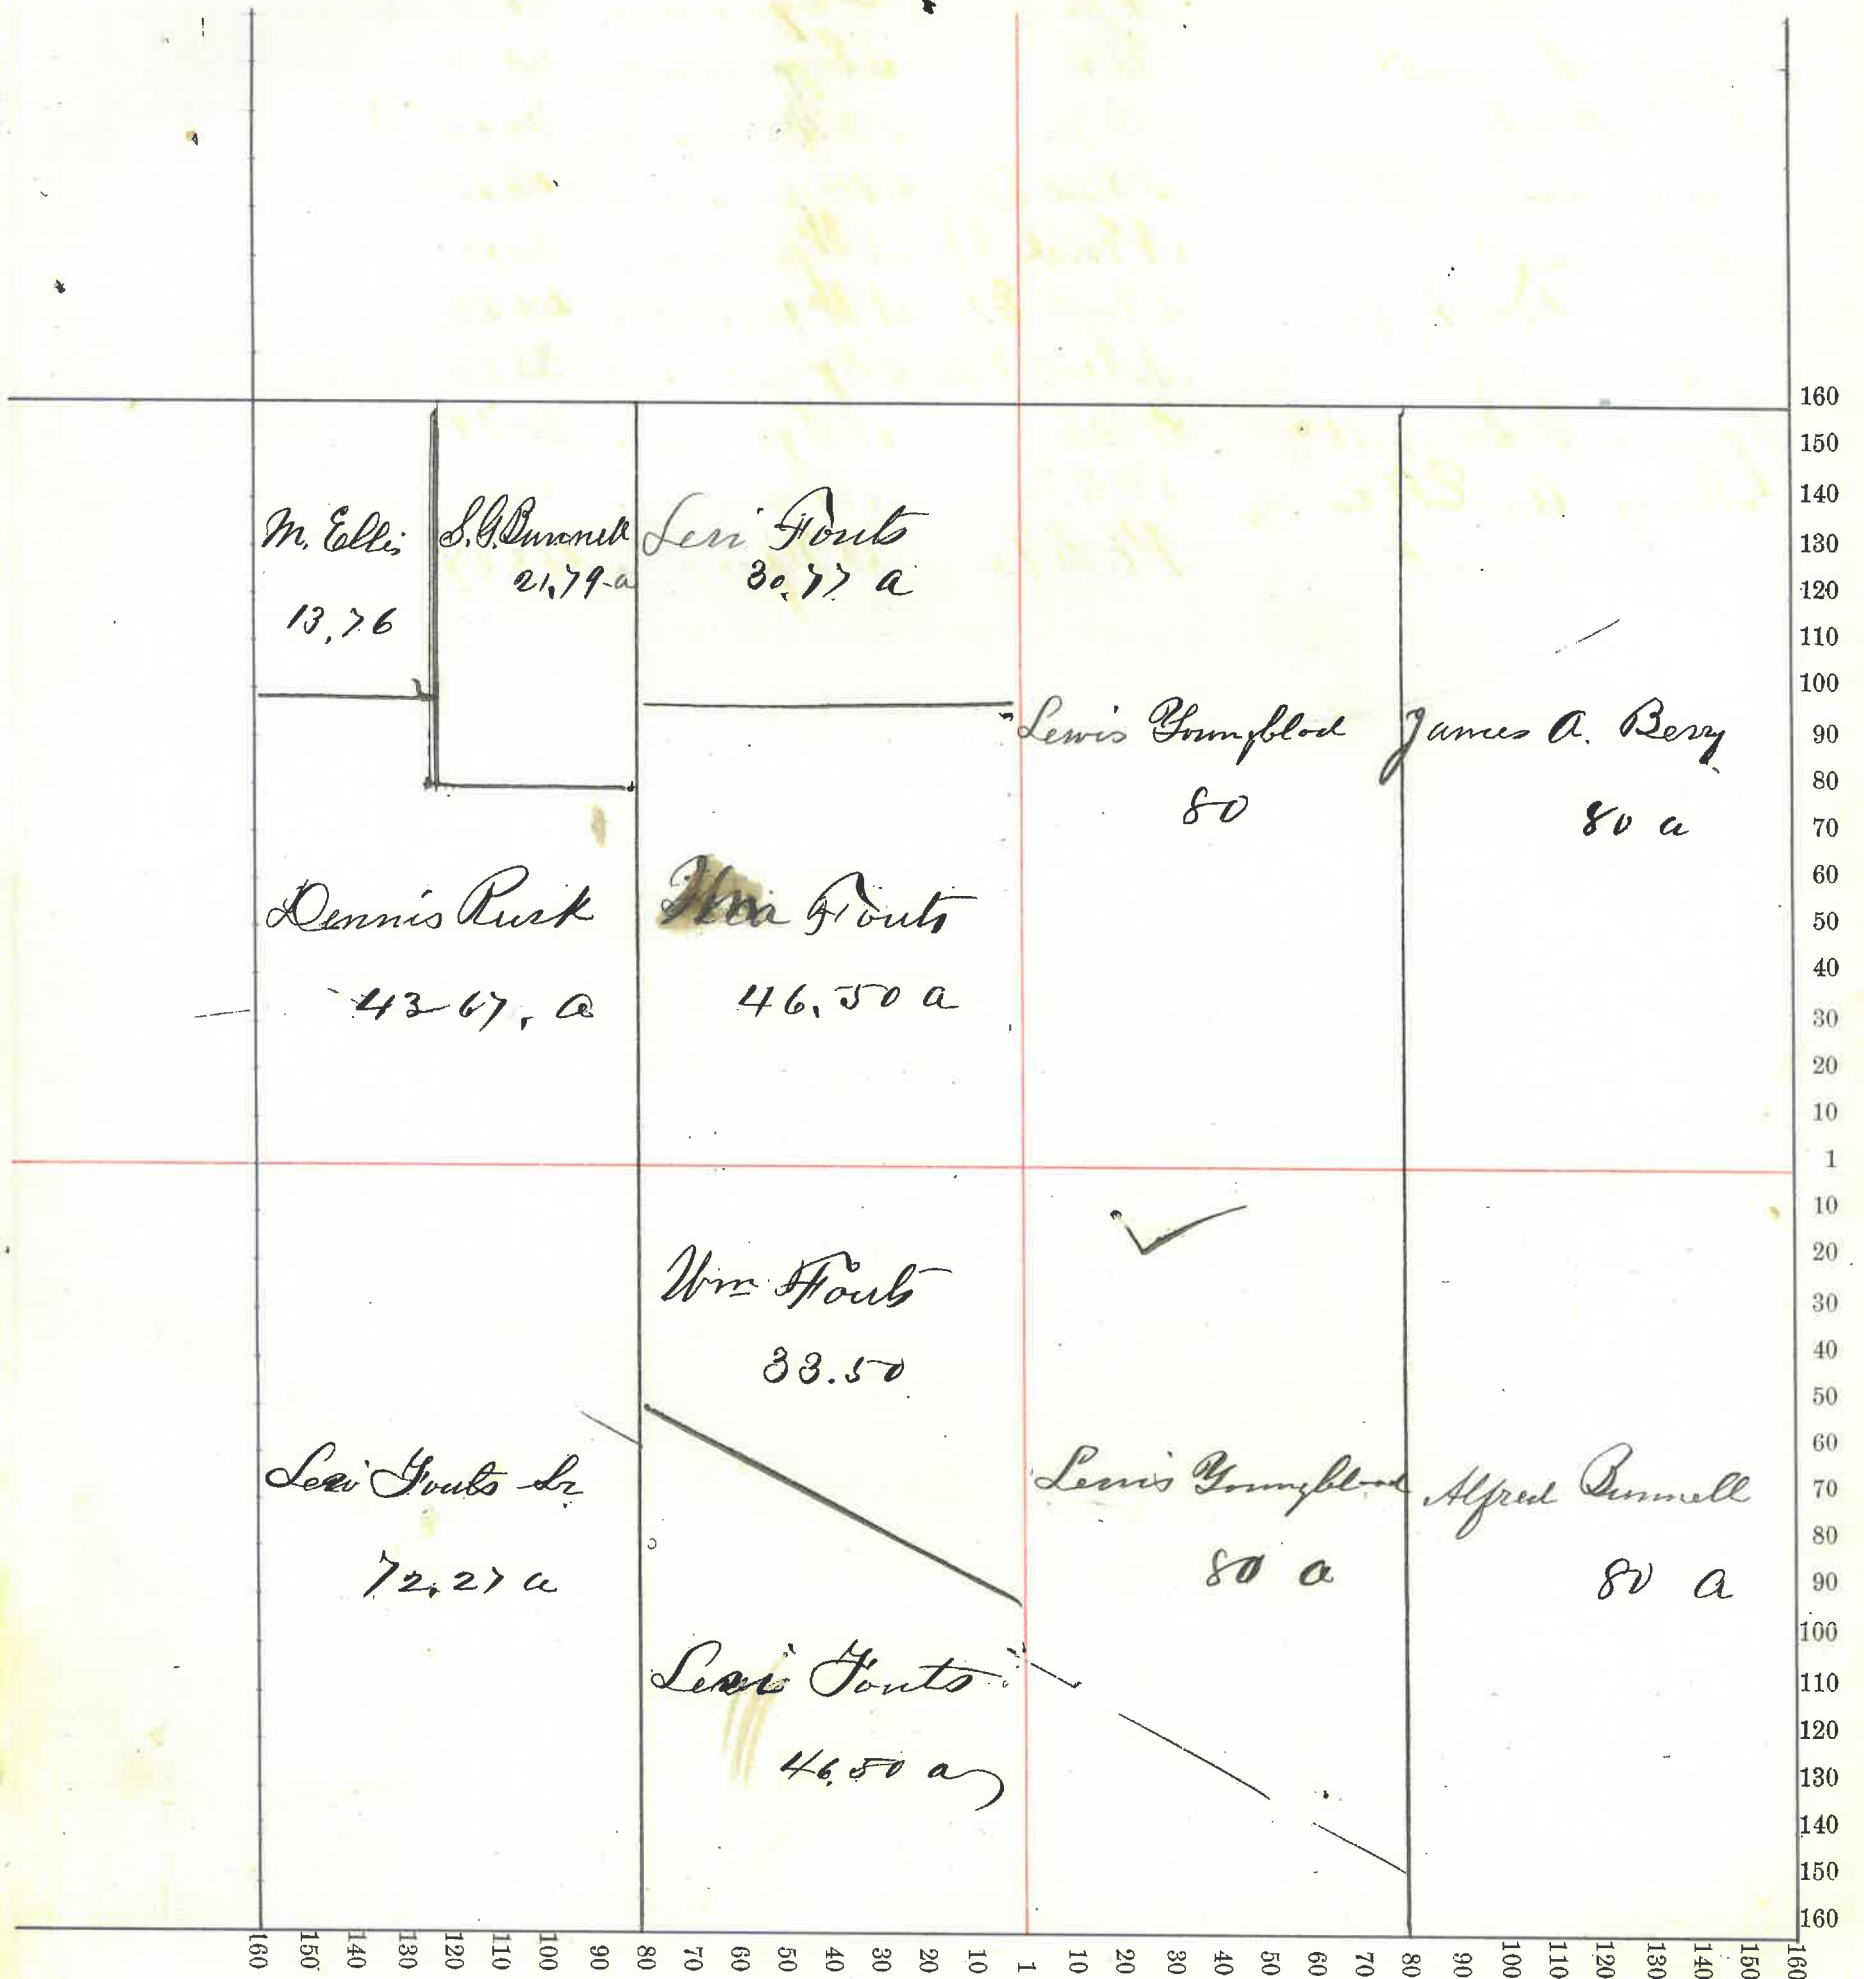 M. Ellis
13.76
S. G. Bunnell
21.79 a
Levi Fouts
30.77 a
Lewis Youngblod
80
James A. Berry
80 a
Dennis Rusk
43-67. a
Fouts
46.50 a
Wm Fouts
33.50
Levi Fouts Sr
72.27 a
Levi Fouts
46.50 a
Lewis Youngblood
80 a
Alfred Bunnell
80 a
160
150
140
130
120
110
100
90
80
70
60
50
40
30
20
10
1
10
20
30
40
50
60
70
80
90
100
110
120
130
140
150
160
160 150 140 130 120 110 100 90 80 70 60 50 40 30 20 10 1 10 20 30 40 50 60 70 80 90 100 110 120 130 140 150 160